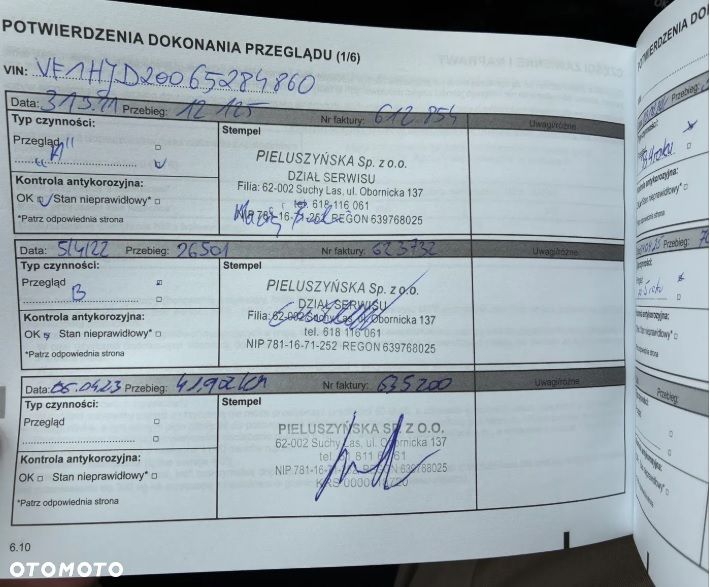 POTWIERDZENIA DOKONANIA PRZEGLĄDU (1/6)
VIN: VF1HJD20065284860
Data: 31.3.11 Przebieg: 12 125 Nr faktury: 612.854 Uwagi/różne
Typ czynności: Stempel
Przegląd
"A"
PIELUSZYŃSKA Sp. z o.o.
DZIAŁ SERWISU
Filia: 62-002 Suchy Las, ul. Obornicka 137
tel. 618 116 061
NIP 781-16-71-252 REGON 639768025
Kontrola antykorozyjna:
OK Stan nieprawidłowy*
*Patrz odpowiednia strona
Data: 5/4/22 Przebieg: 26501 Nr faktury: 623732 Uwagi/różne
Typ czynności: Stempel
Przegląd
B
PIELUSZYŃSKA Sp. z o.o.
DZIAŁ SERWISU
Filia: 62-002 Suchy Las, ul. Obornicka 137
tel. 618 116 061
NIP 781-16-71-252 REGON 639768025
Kontrola antykorozyjna:
OK Stan nieprawidłowy*
*Patrz odpowiednia strona
Data: 05.04.23 Przebieg: 41902 km Nr faktury: 635200 Uwagi/różne
Typ czynności: Stempel
Przegląd
PIELUSZYŃSKA SP. Z O.O.
62-002 Suchy Las, ul. Obornicka 137
NIP 781-16-71-252 REGON 639768025
Kontrola antykorozyjna:
OK Stan nieprawidłowy*
*Patrz odpowiednia strona
6.10
OTOMOTO
POTWIERDZENIA
Przebieg:
Stan nieprawidłowy*
Przebieg:
Stan nieprawidłowy*
Przebieg: